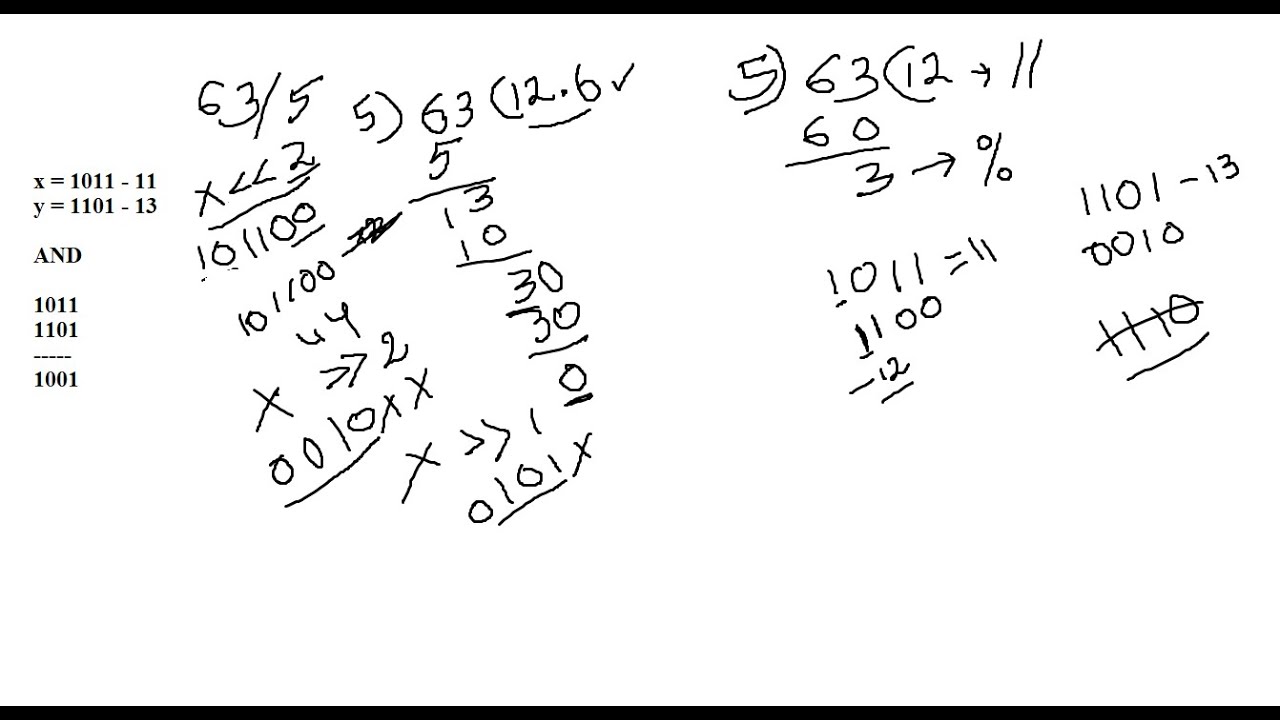 x = 1011 - 11
y = 1101 - 13
AND
1011
1101
-----
1001
63/5
x<<2
101100
101100
44
x >> 2
0010xx
5) 63 (12.6 ✓
5
13
10
30
30
0
x >> 1
0101x
5) 63 (12 → //
60
3 → %
1011 = 11
1100
-12
1101 - 13
0010
1110